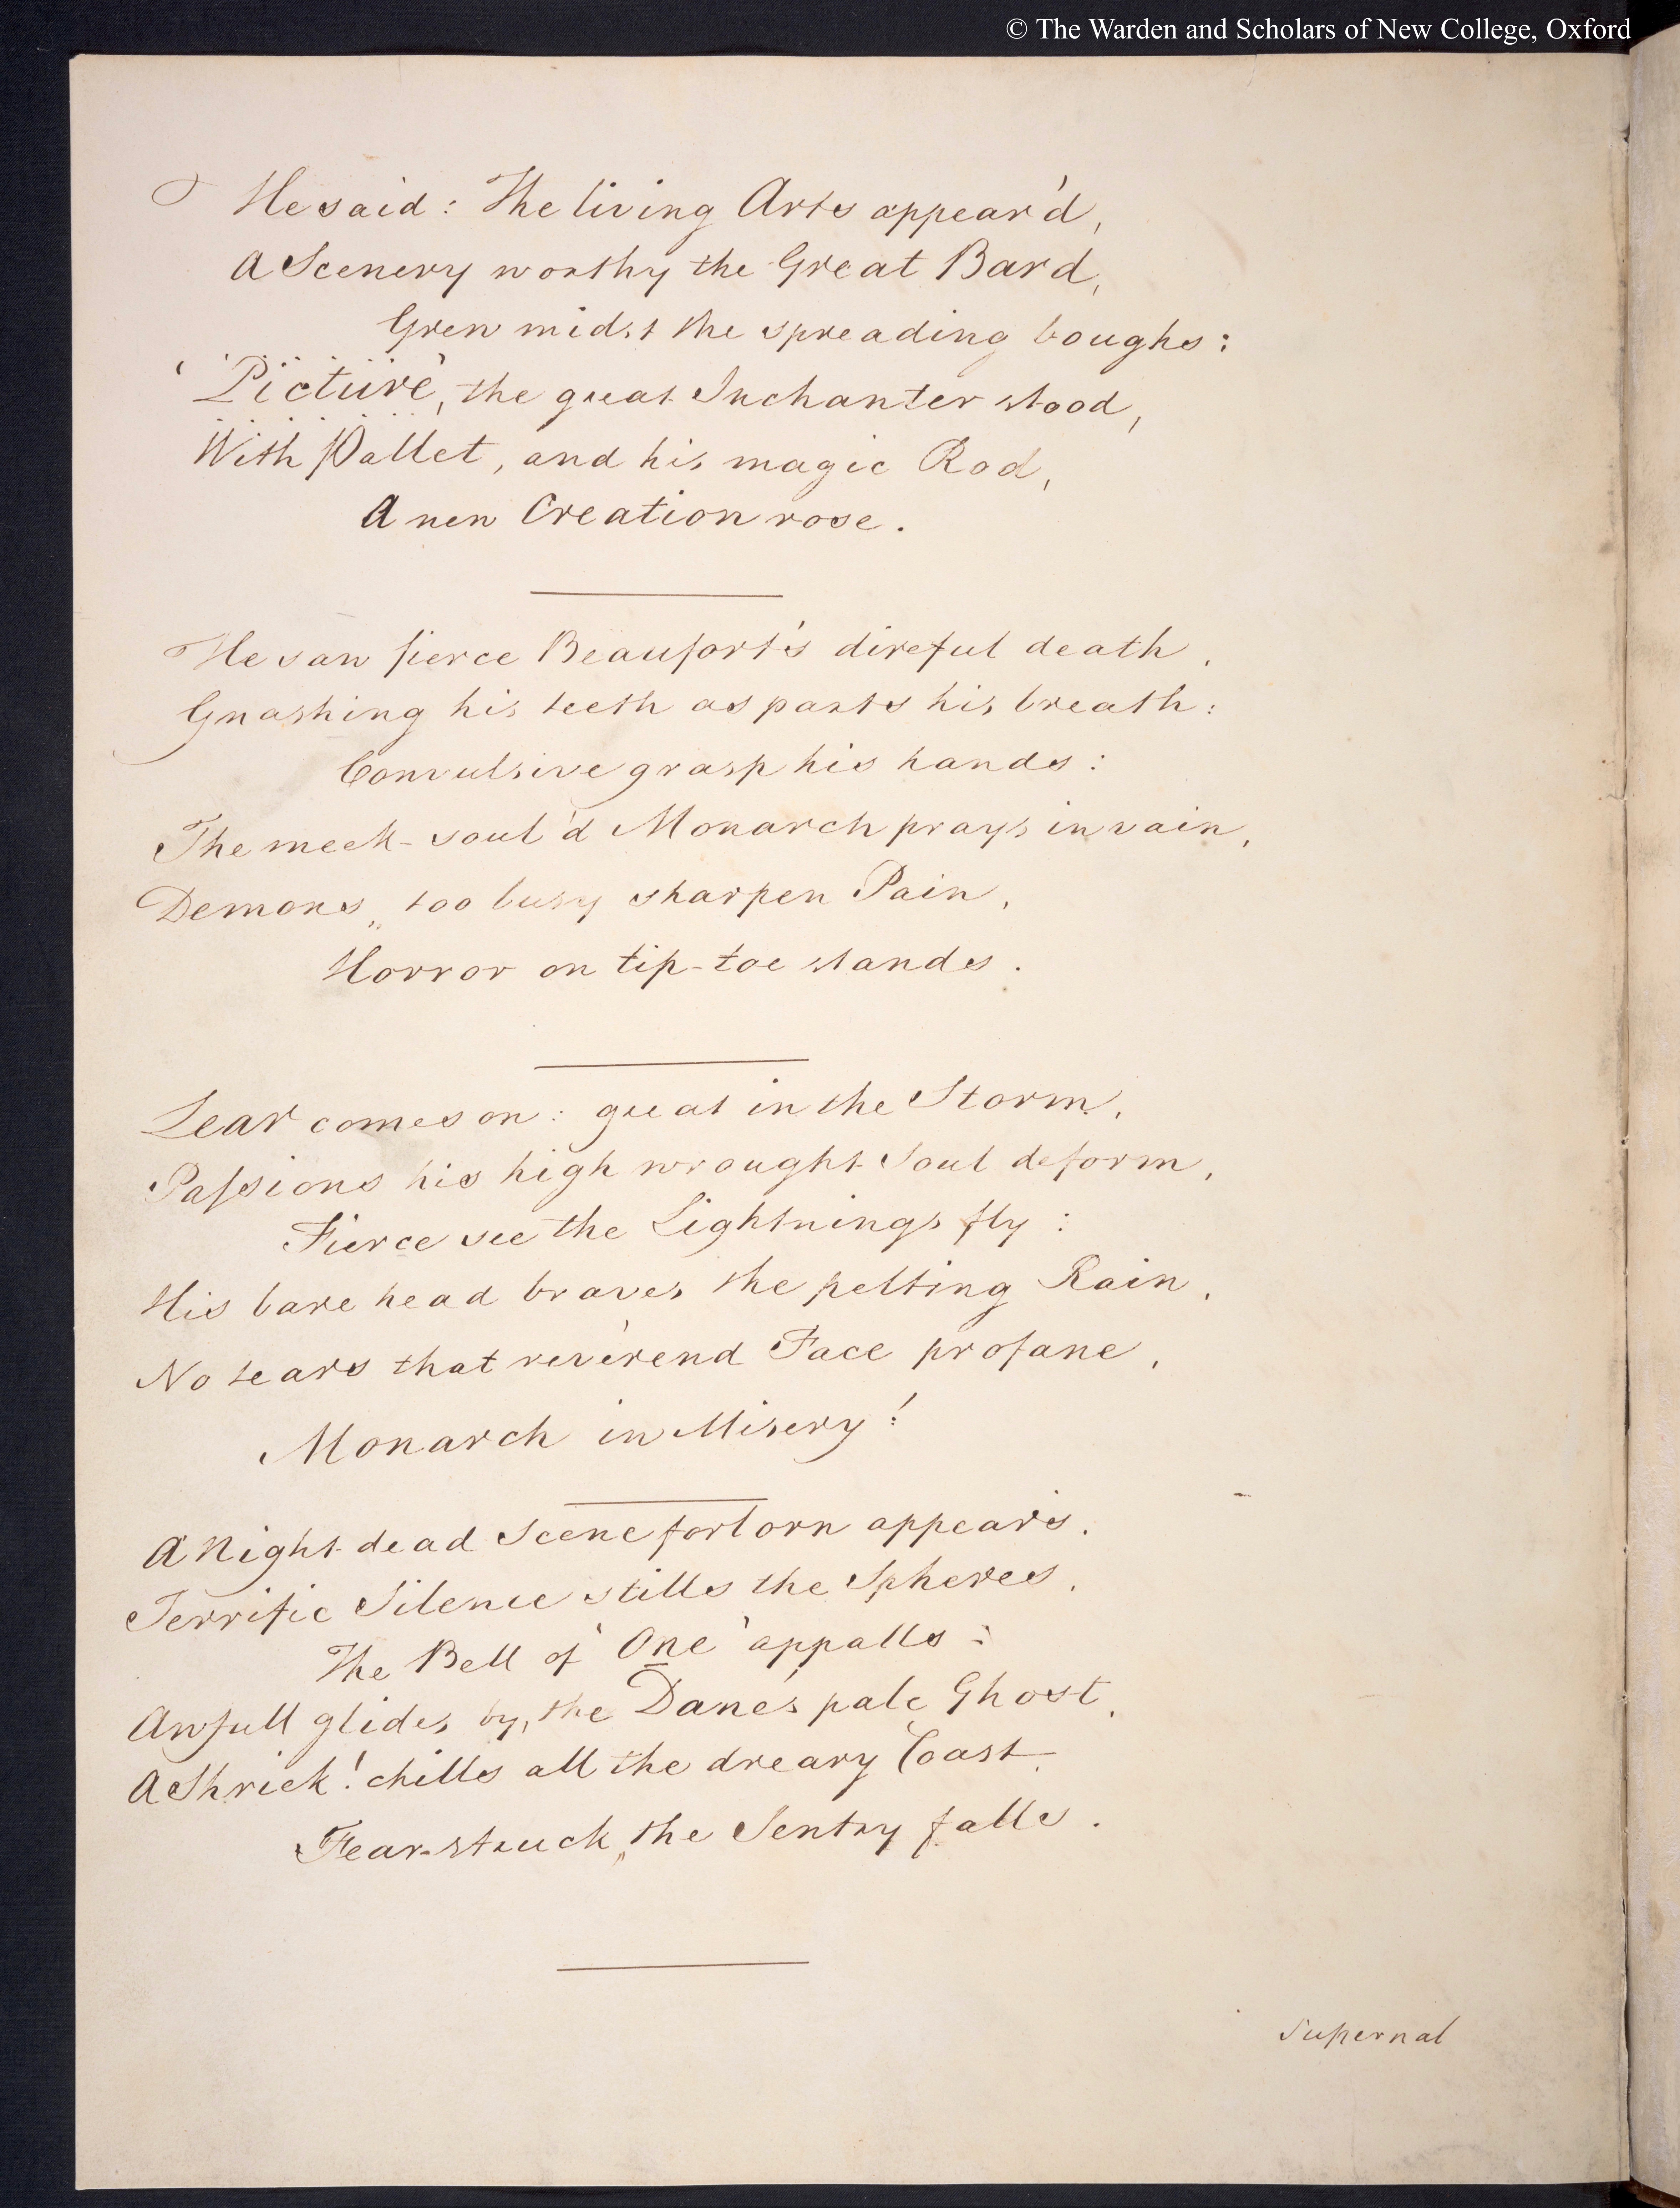 © The Warden and Scholars of New College, Oxford
He said: The living Arts appear'd,
A Scenery worthy the Great Bard,
Grew midst the spreading boughs:
'Picture', the great Inchanter stood,
With Pallet, and his magic Rod,
A new Creation rose.
He saw fierce Beaufort's direful death,
Gnashing his teeth as parts his breath:
Convulsive grasp his hands:
The meek-soul'd Monarch prays in vain,
Demons, too busy sharpen Pain,
Horror on tip-toe stands.
Lear comes on: great in the Storm,
Paſsions his high wrought Soul deform,
Fierce see the Lightnings fly:
His bare head braves the pelting Rain,
No tears that rev'rend Face profane,
Monarch in Misery!
A Night-dead Scene forlorn appears,
Terrific Silence stills the Spheres,
The Bell of 'One' appalls:
Awfull glides by, the Dane's pale Ghost,
A Shriek! chills all the dreary Coast,
Fear-struck, the Sentry falls.
Supernal